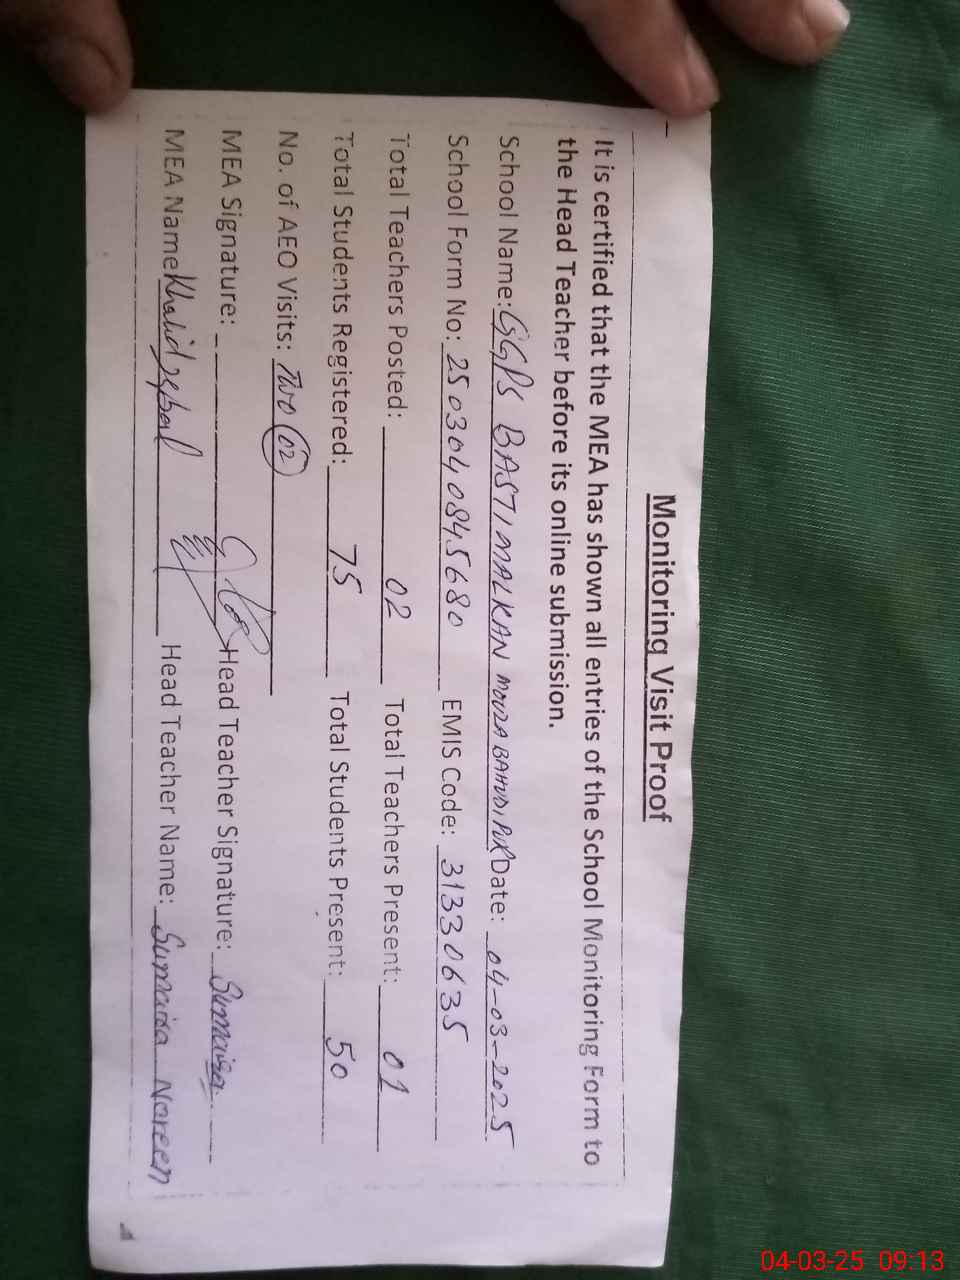 Monitoring Visit Proof
It is certified that the MEA has shown all entries of the School Monitoring Form to
the Head Teacher before its online submission.
School Name: GGPS BASTI MALKAN MOUZA BAHUDIPUR Date: 04-03-2025
School Form No: 250304084S680 EMIS Code: 31330635
Total Teachers Posted: 02 Total Teachers Present: 01
Total Students Registered: 75 Total Students Present: 50
No. of AEO Visits: Two 02
MEA Signature: Head Teacher Signature: Sumaira
MEA Name Khalid Iqbal Head Teacher Name: Sumaira Noreen
04-03-25 09:13